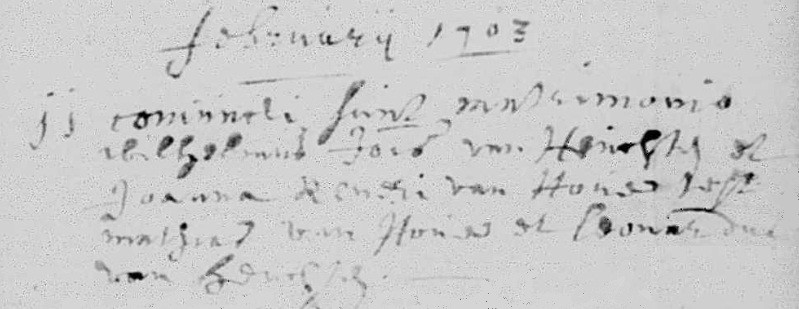 februarij 1703
jj coniuncti sunt matrimonio
wilhelmus Jois van Henchten et
Joanna Rendri van Houes test
mathias van Houes et leonardus
van Henchten